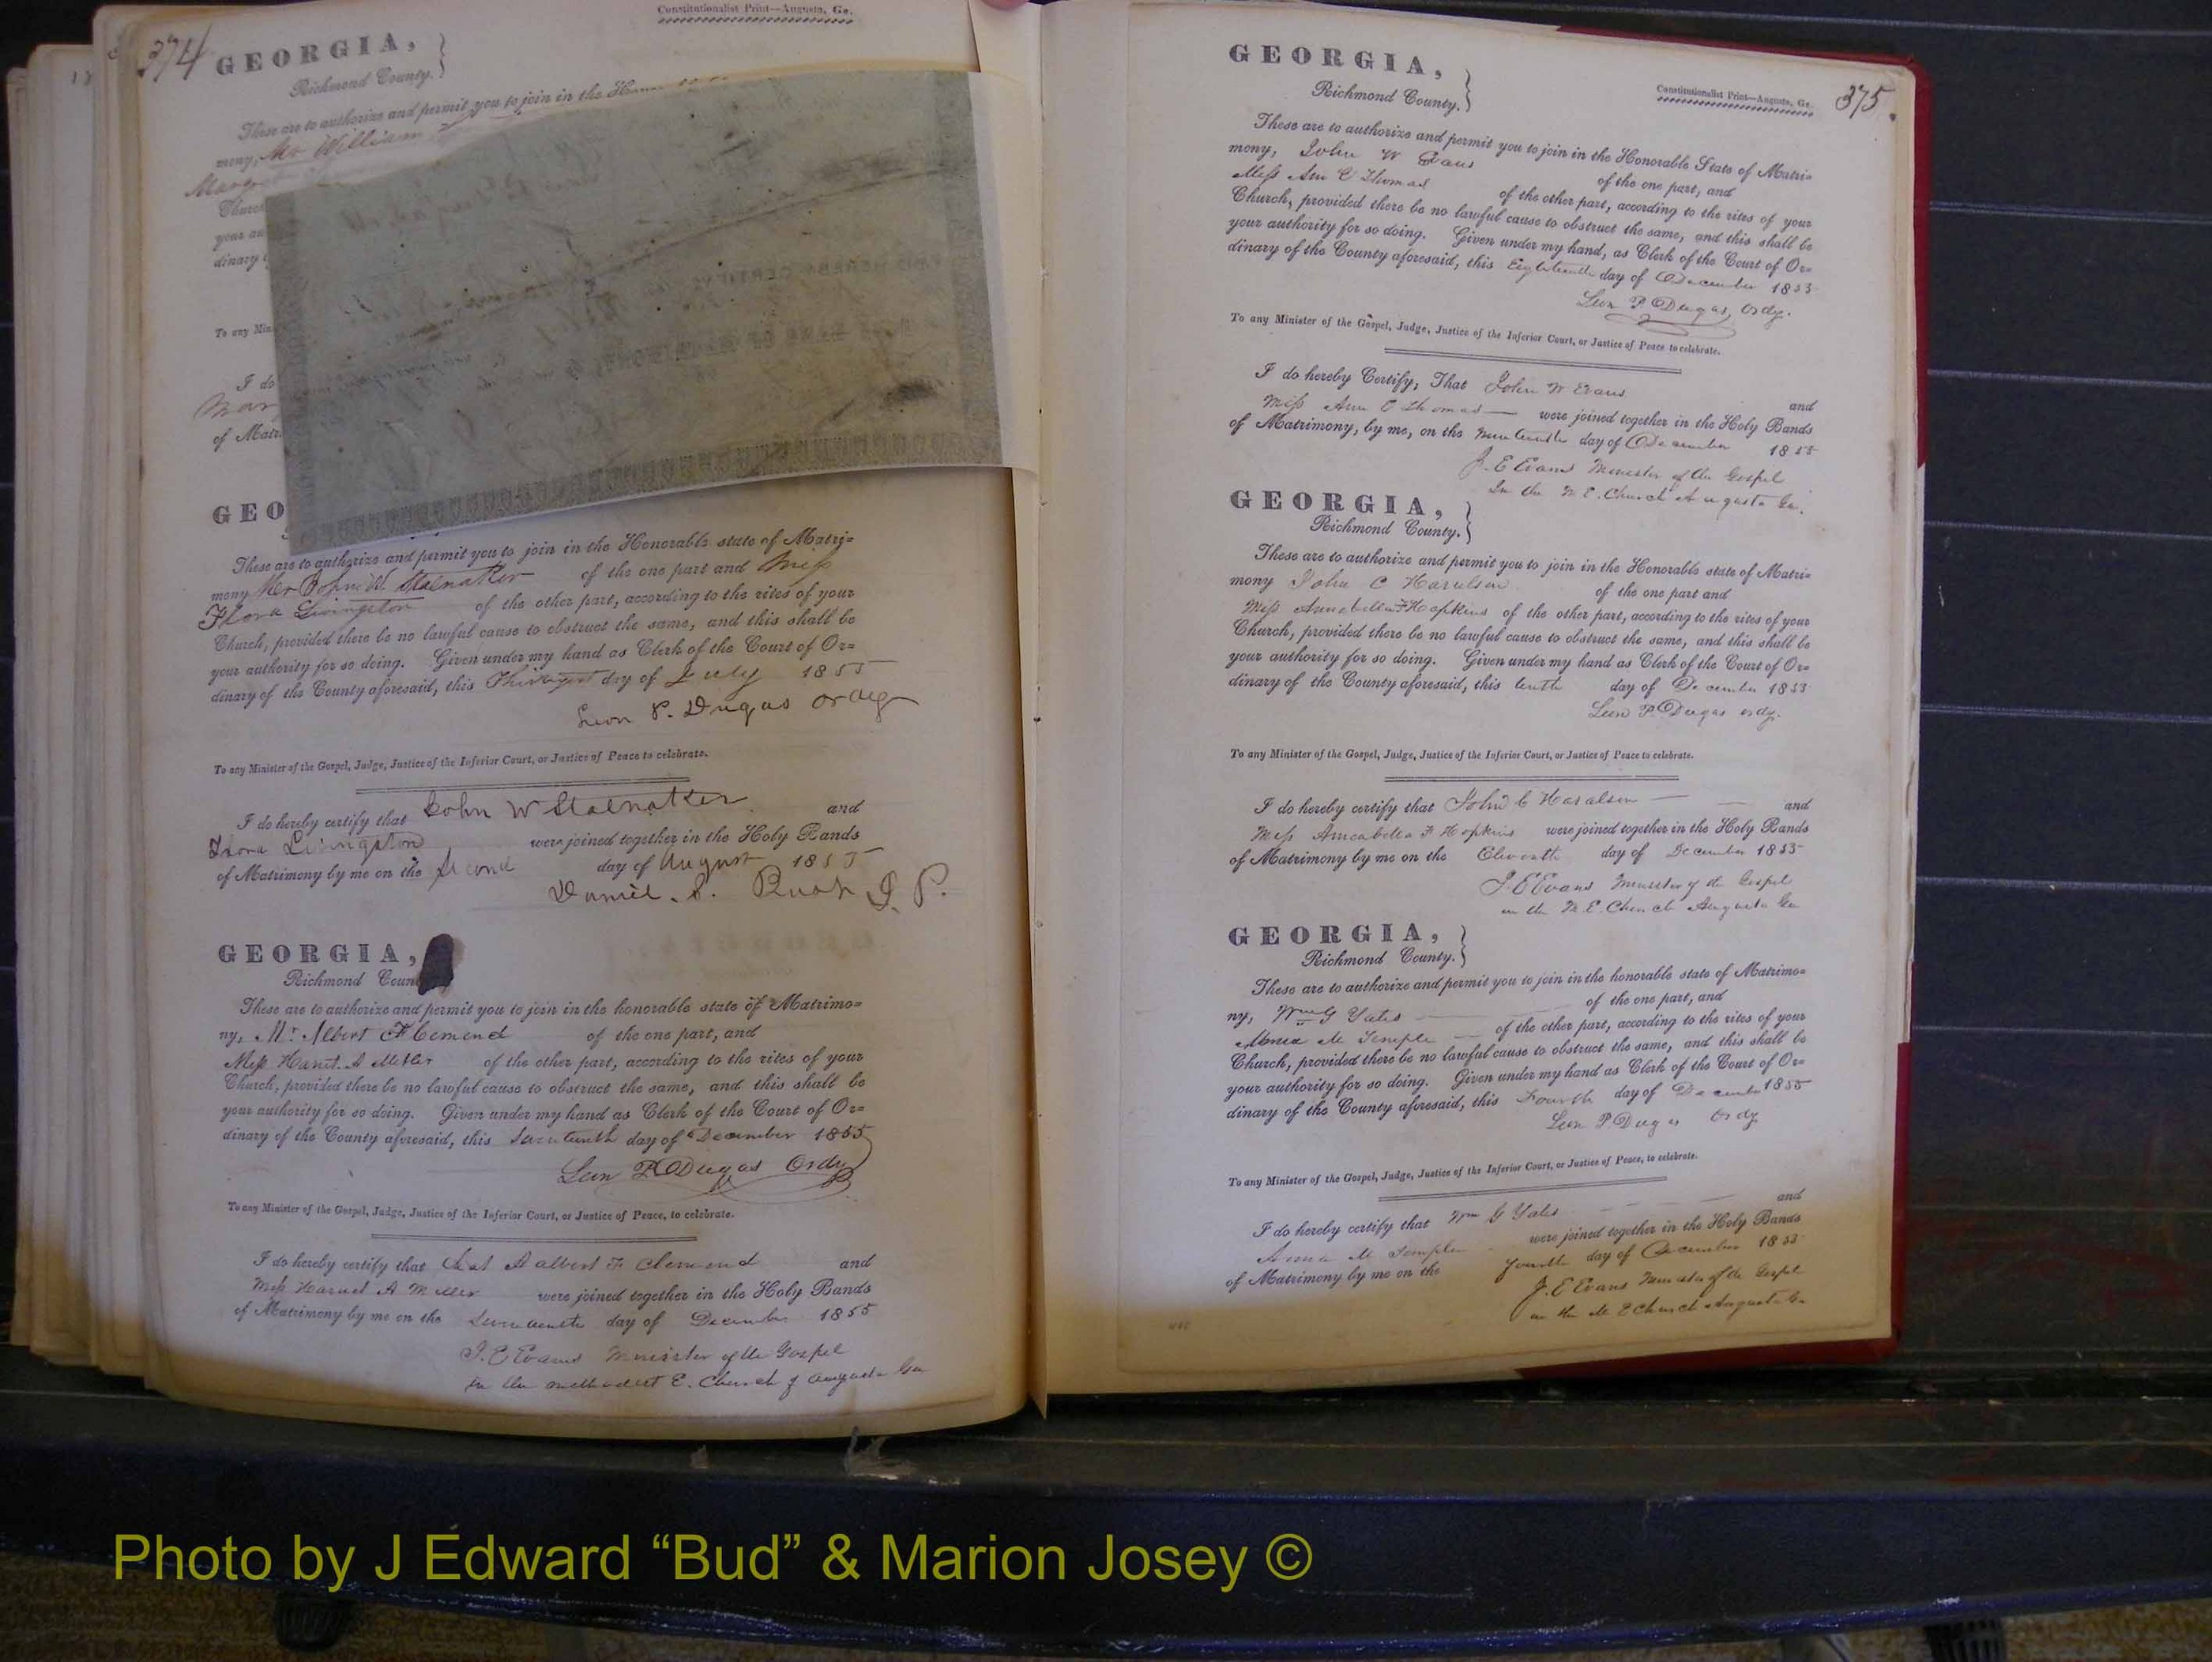 374
Constitutionalist Print—Augusta, Ga.
GEORGIA,
Richmond County.
These are to authorize and permit you to join in the
mony, Mr William
Church
your au
dinary
To any Min
I do
Mar
of Matr
GEO
These are to authorize and permit you to join in the Honorable state of Matri=
mony Mr John W. Stalnaker of the one part and Miss
Flora Livingston of the other part, according to the rites of your
Church, provided there be no lawful cause to obstruct the same, and this shall be
your authority for so doing. Given under my hand as Clerk of the Court of Or=
dinary of the County aforesaid, this day of July 1855
Leon P. Dugas Ordy
To any Minister of the Gospel, Judge, Justice of the Inferior Court, or Justice of Peace to celebrate.
I do hereby certify that John W Stalnaker and
Flora Livingston were joined together in the Holy Bands
of Matrimony by me on the Second day of August 1855
Daniel S. Rush J. P.
GEORGIA,
Richmond Coun
These are to authorize and permit you to join in the honorable state of Matrimo=
ny, Mr. Albert F Clemend of the one part, and
Miss A of the other part, according to the rites of your
Church, provided there be no lawful cause to obstruct the same, and this shall be
your authority for so doing. Given under my hand as Clerk of the Court of Or=
dinary of the County aforesaid, this day of December 1855
Leon P Dugas Ordy
To any Minister of the Gospel, Judge, Justice of the Inferior Court, or Justice of Peace, to celebrate.
I do hereby certify that that Albert F. Clemend and
Miss Harriet A Miller were joined together in the Holy Bands
of Matrimony by me on the day of December 1855
J. E Evans Minister of the Gospel
in the Methodist E. Church of Augusta Ga
375
Constitutionalist Print—Augusta, Ga.
GEORGIA,
Richmond County.
These are to authorize and permit you to join in the Honorable State of Matri=
mony, John W Evans of the one part, and
Miss Ann C Thomas of the other part, according to the rites of your
Church, provided there be no lawful cause to obstruct the same, and this shall be
your authority for so doing. Given under my hand, as Clerk of the Court of Or=
dinary of the County aforesaid, this Eighteenth day of December 1855
Leon P Dugas, Ordy.
To any Minister of the Gospel, Judge, Justice of the Inferior Court, or Justice of Peace to celebrate.
I do hereby Certify, That John W Evans and
Miss Ann C Thomas were joined together in the Holy Bands
of Matrimony, by me, on the Nineteenth day of December 1855
J. E Evans Minister of the Gospel
In the M. E. Church Augusta Ga.
GEORGIA,
Richmond County.
These are to authorize and permit you to join in the Honorable state of Matri=
mony John C Haralson of the one part and
Miss Annabella F Hopkins of the other part, according to the rites of your
Church, provided there be no lawful cause to obstruct the same, and this shall be
your authority for so doing. Given under my hand as Clerk of the Court of Or=
dinary of the County aforesaid, this tenth day of December 1855
Leon P. Dugas ordy.
To any Minister of the Gospel, Judge, Justice of the Inferior Court, or Justice of Peace to celebrate.
I do hereby certify that John C Haralson and
Miss Annabella F Hopkins were joined together in the Holy Bands
of Matrimony by me on the Eleventh day of December 1855
J. E Evans Minister of the Gospel
in the M. E. Church Augusta Ga
GEORGIA,
Richmond County.
These are to authorize and permit you to join in the honorable state of Matrimo=
ny, Wm G Yates of the one part, and
M Temple of the other part, according to the rites of your
Church, provided there be no lawful cause to obstruct the same, and this shall be
your authority for so doing. Given under my hand as Clerk of the Court of Or=
dinary of the County aforesaid, this Fourth day of December 1855
Leon P Dugas Ordy
To any Minister of the Gospel, Judge, Justice of the Inferior Court, or Justice of Peace, to celebrate.
I do hereby certify that Wm G Yates and
Anna M Temple were joined together in the Holy Bands
of Matrimony by me on the fourth day of December 1855
J. E Evans Minister of the Gospel
in the M E Church Augusta Ga
Photo by J Edward “Bud” & Marion Josey ©